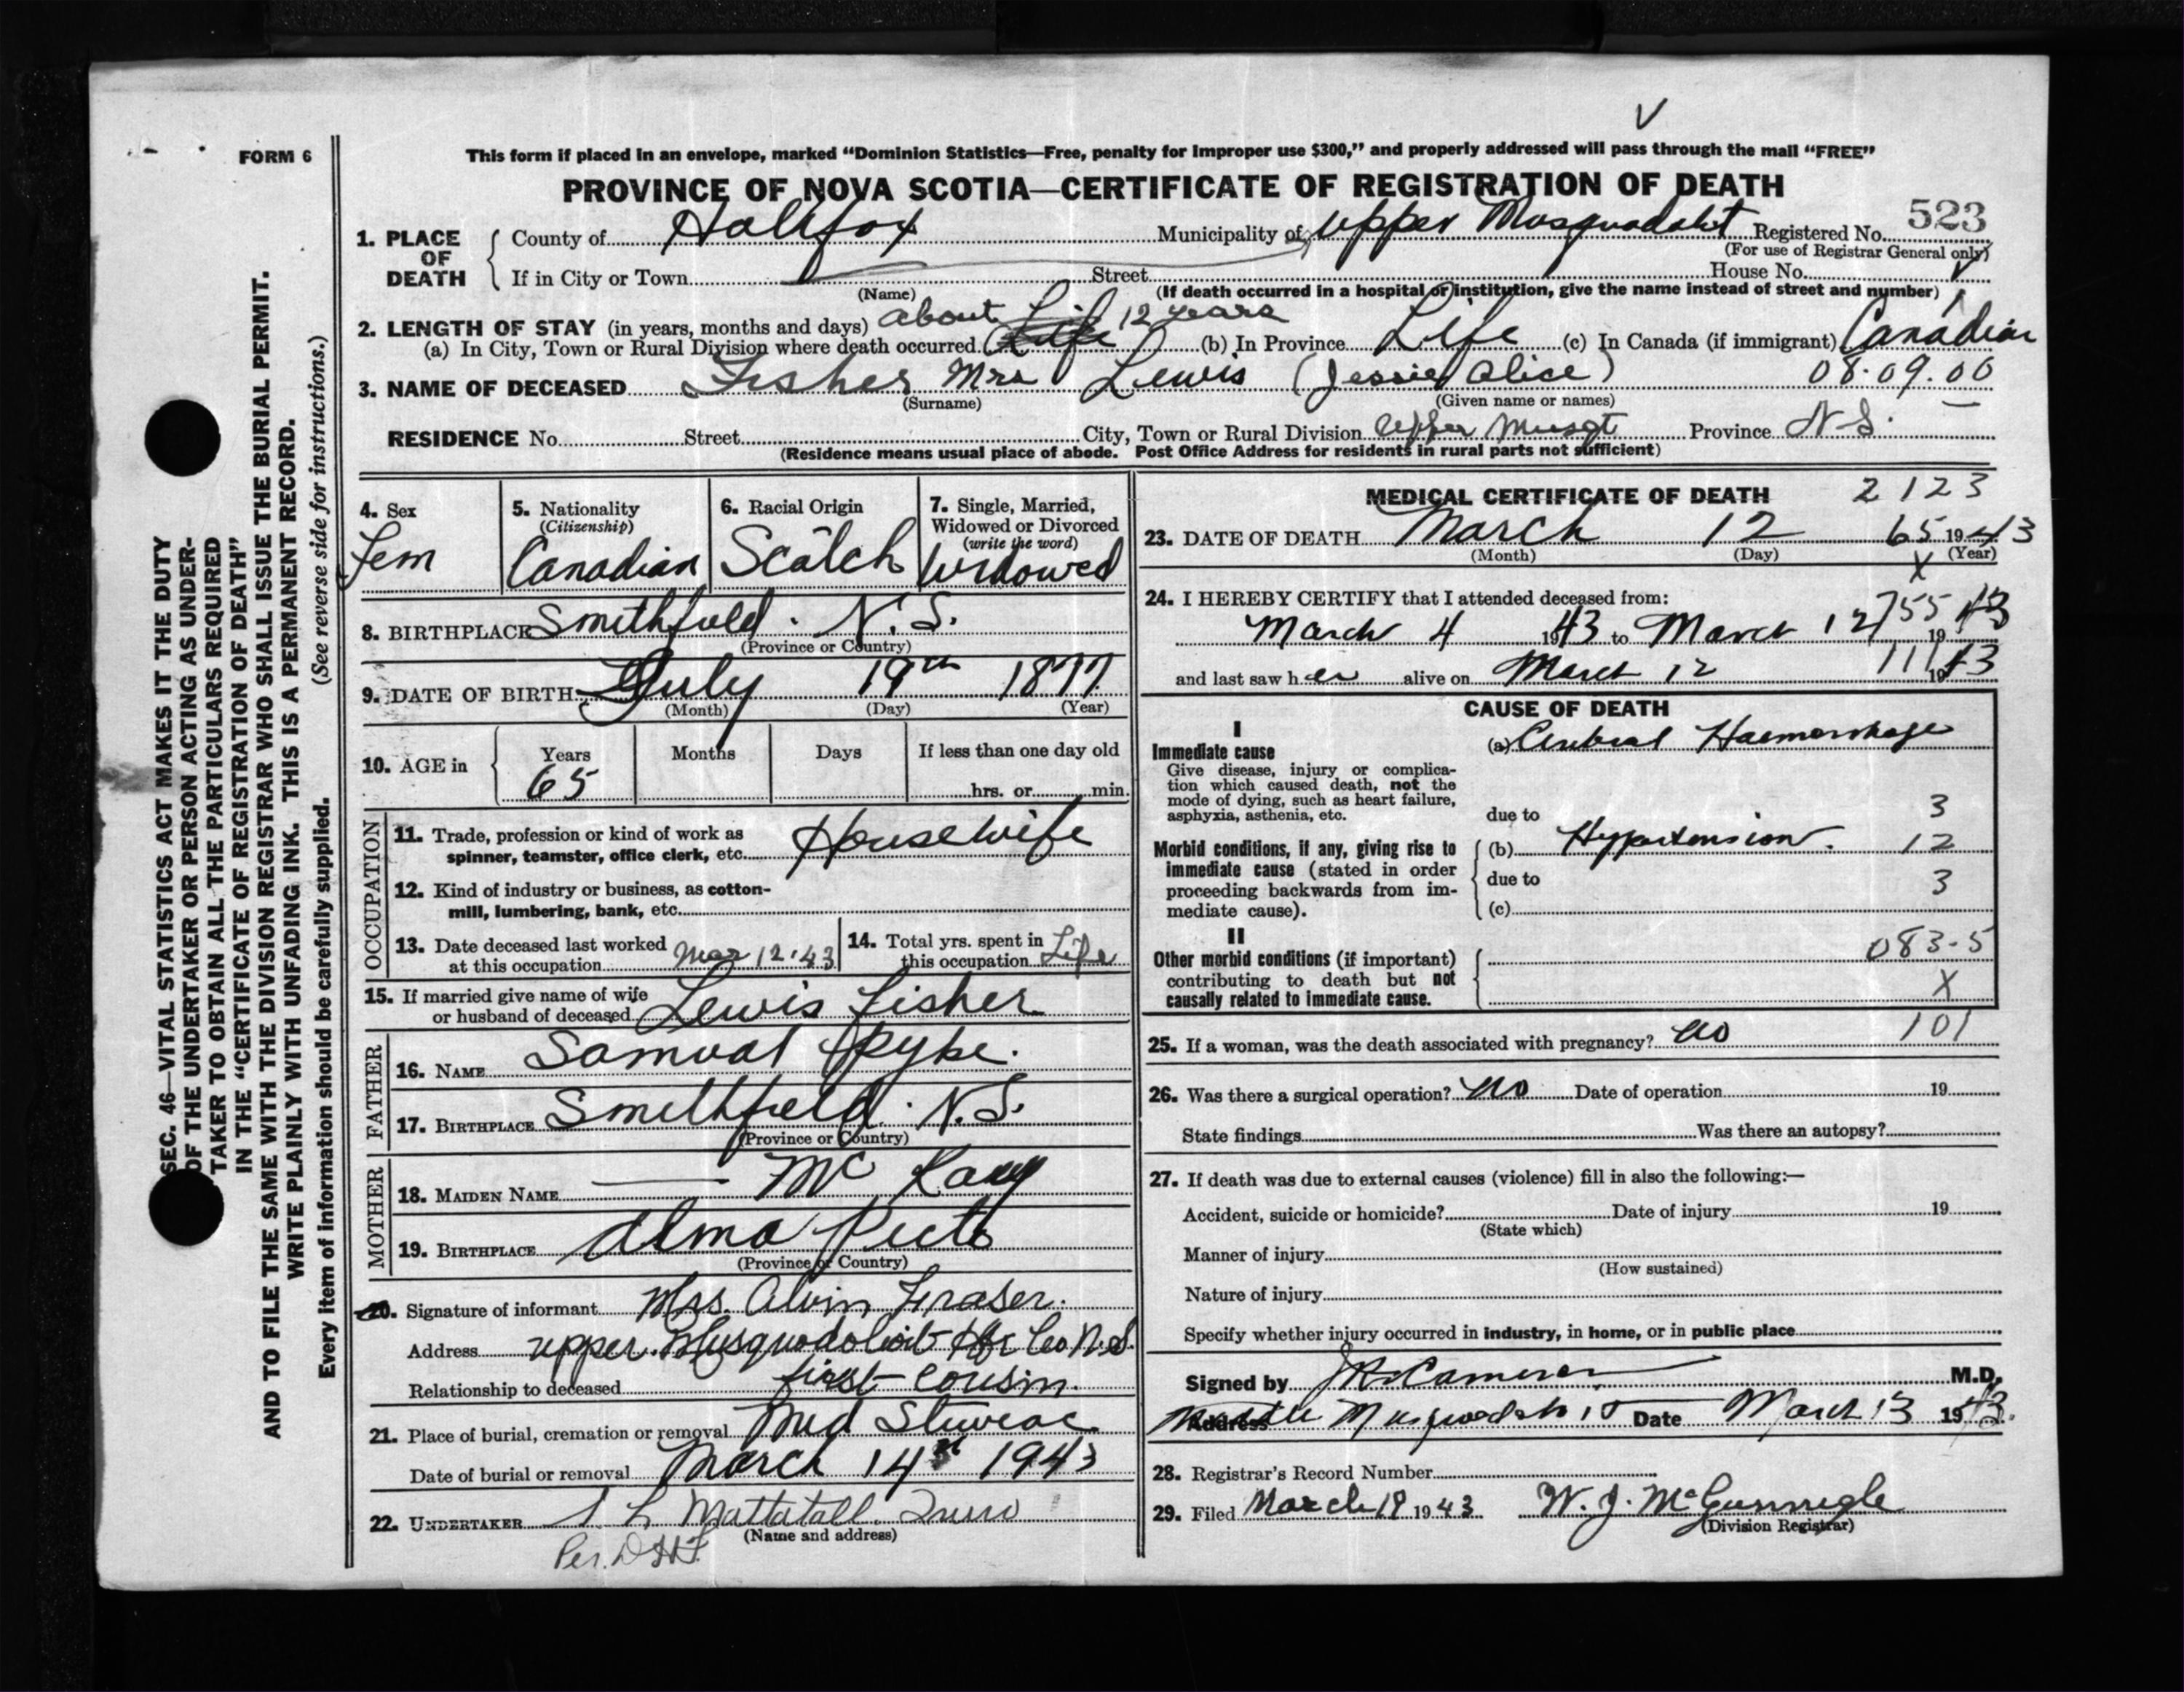 FORM 6
This form if placed in an envelope, marked “Dominion Statistics—Free, penalty for improper use $300,” and properly addressed will pass through the mail “FREE”
PROVINCE OF NOVA SCOTIA—CERTIFICATE OF REGISTRATION OF DEATH
1. PLACE OF DEATH
County of Halifax Municipality of Upper Musquodobit Registered No. 523
(For use of Registrar General only)
If in City or Town Street House No.
(Name) (If death occurred in a hospital or institution, give the name instead of street and number)
2. LENGTH OF STAY (in years, months and days) about 12 years
(a) In City, Town or Rural Division where death occurred Life (b) In Province Life (c) In Canada (if immigrant) Canadian
3. NAME OF DECEASED Fisher Mrs Lewis (Jessie Alice) 08.09.00
(Surname) (Given name or names)
RESIDENCE No. Street City, Town or Rural Division Upper Musqt Province N.S.
(Residence means usual place of abode. Post Office Address for residents in rural parts not sufficient)
SEC. 46—VITAL STATISTICS ACT MAKES IT THE DUTY
OF THE UNDERTAKER OR PERSON ACTING AS UNDER-
TAKER TO OBTAIN ALL THE PARTICULARS REQUIRED
IN THE “CERTIFICATE OF REGISTRATION OF DEATH”
AND TO FILE THE SAME WITH THE DIVISION REGISTRAR WHO SHALL ISSUE THE BURIAL PERMIT.
WRITE PLAINLY WITH UNFADING INK. THIS IS A PERMANENT RECORD.
Every item of information should be carefully supplied. (See reverse side for instructions.)
4. Sex
Fem
5. Nationality
(Citizenship)
Canadian
6. Racial Origin
Scotch
7. Single, Married,
Widowed or Divorced
(write the word)
Widowed
8. BIRTHPLACE Smithfield. N.S.
(Province or Country)
9. DATE OF BIRTH July 19th 1877
(Month) (Day) (Year)
10. AGE in
Years Months Days If less than one day old
65 hrs. or min.
OCCUPATION
11. Trade, profession or kind of work as
spinner, teamster, office clerk, etc. Housewife
12. Kind of industry or business, as cotton-
mill, lumbering, bank, etc.
13. Date deceased last worked
at this occupation Mar 12.43
14. Total yrs. spent in
this occupation Life
15. If married give name of wife
or husband of deceased Lewis Fisher
FATHER
16. NAME Samual Pyke.
17. BIRTHPLACE Smithfield. N.S.
(Province or Country)
MOTHER
18. MAIDEN NAME Mc Kay
19. BIRTHPLACE Alma Picto
(Province or Country)
20. Signature of informant Mrs. Alvin Fraser.
Address upper. Musquodoboit Hfx Co N.S.
Relationship to deceased first cousin.
21. Place of burial, cremation or removal Mid Stewiac
Date of burial or removal March 14 1943
22. UNDERTAKER L Mattatall. Truro
(Name and address)
Per.
MEDICAL CERTIFICATE OF DEATH 2123
23. DATE OF DEATH March 12 65 1943
(Month) (Day) (Year)
X
24. I HEREBY CERTIFY that I attended deceased from:
755
March 4 1943 to March 12 1943
and last saw her alive on March 12 111 1943
CAUSE OF DEATH
I
Immediate cause
Give disease, injury or complica-
tion which caused death, not the
mode of dying, such as heart failure,
asphyxia, asthenia, etc.
(a) Cerebral Haemorrhage
due to 3
Morbid conditions, if any, giving rise to
immediate cause (stated in order
proceeding backwards from im-
mediate cause).
(b) Hypertension. 12
due to 3
(c)
II
Other morbid conditions (if important)
contributing to death but not
causally related to immediate cause.
083-5
X
25. If a woman, was the death associated with pregnancy? no 101
26. Was there a surgical operation? no Date of operation 19
State findings Was there an autopsy?
27. If death was due to external causes (violence) fill in also the following:—
Accident, suicide or homicide? Date of injury 19
(State which)
Manner of injury
(How sustained)
Nature of injury
Specify whether injury occurred in industry, in home, or in public place
Signed by Cameron M.D.
Address Middle Musquodoboit Date March 13 1943.
28. Registrar's Record Number
29. Filed March 19 1943 W. J. McGunnigle
(Division Registrar)